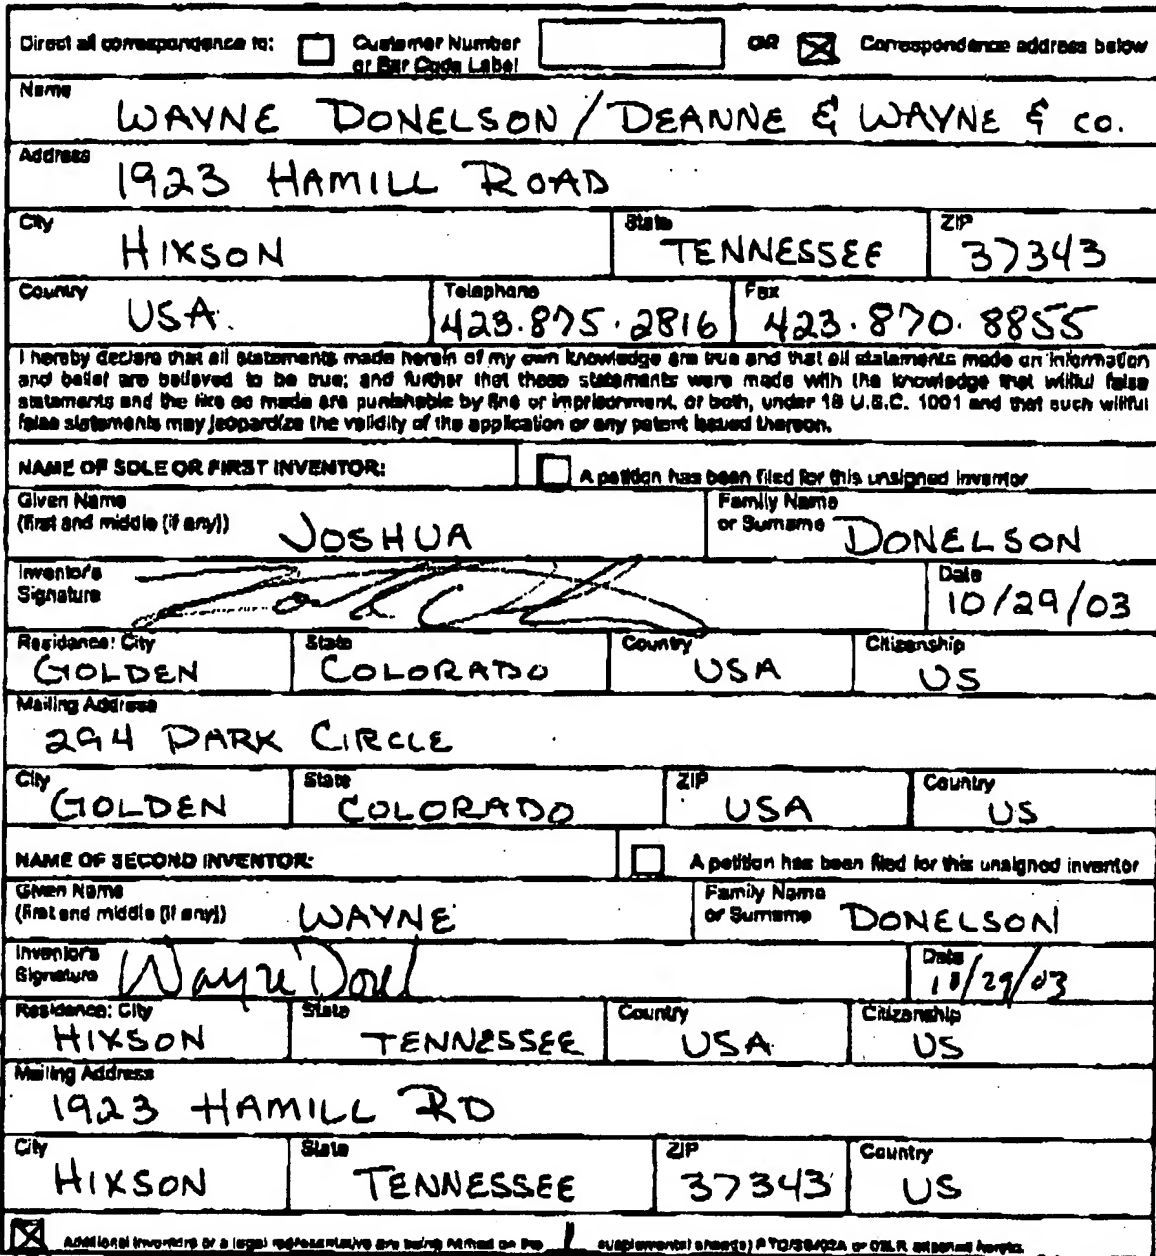 Direct all correspondence to: Customer Number or Bar Code Label OR Correspondence address below
Name
WAYNE DONELSON / DEANNE & WAYNE & CO.
Address
1923 HAMILL ROAD
City State ZIP
HIXSON TENNESSEE 37343
Country Telephone Fax
USA 423.875.2816 423.870.8855
I hereby declare that all statements made herein of my own knowledge are true and that all statements made on information
and belief are believed to be true; and further that these statements were made with the knowledge that willful false
statements and the like so made are punishable by fine or imprisonment, or both, under 18 U.S.C. 1001 and that such willful
false statements may jeopardize the validity of the application or any patent issued thereon.
NAME OF SOLE OR FIRST INVENTOR: A petition has been filed for this unsigned inventor
Given Name Family Name
(first and middle [if any]) JOSHUA or Surname DONELSON
Inventor's Date
Signature 10/29/03
Residence: City State Country Citizenship
GOLDEN COLORADO USA US
Mailing Address
294 PARK CIRCLE
City State ZIP Country
GOLDEN COLORADO USA US
NAME OF SECOND INVENTOR: A petition has been filed for this unsigned inventor
Given Name Family Name
(first and middle [if any]) WAYNE or Surname DONELSON
Inventor's Date
Signature Wayne Donel 10/29/03
Residence: City State Country Citizenship
HIXSON TENNESSEE USA US
Mailing Address
1923 HAMILL RD
City State ZIP Country
HIXSON TENNESSEE 37343 US
Additional inventors or a legal representative are being named on the 1 supplemental sheet(s) PTO/SB/02A or 02LR attached hereto.